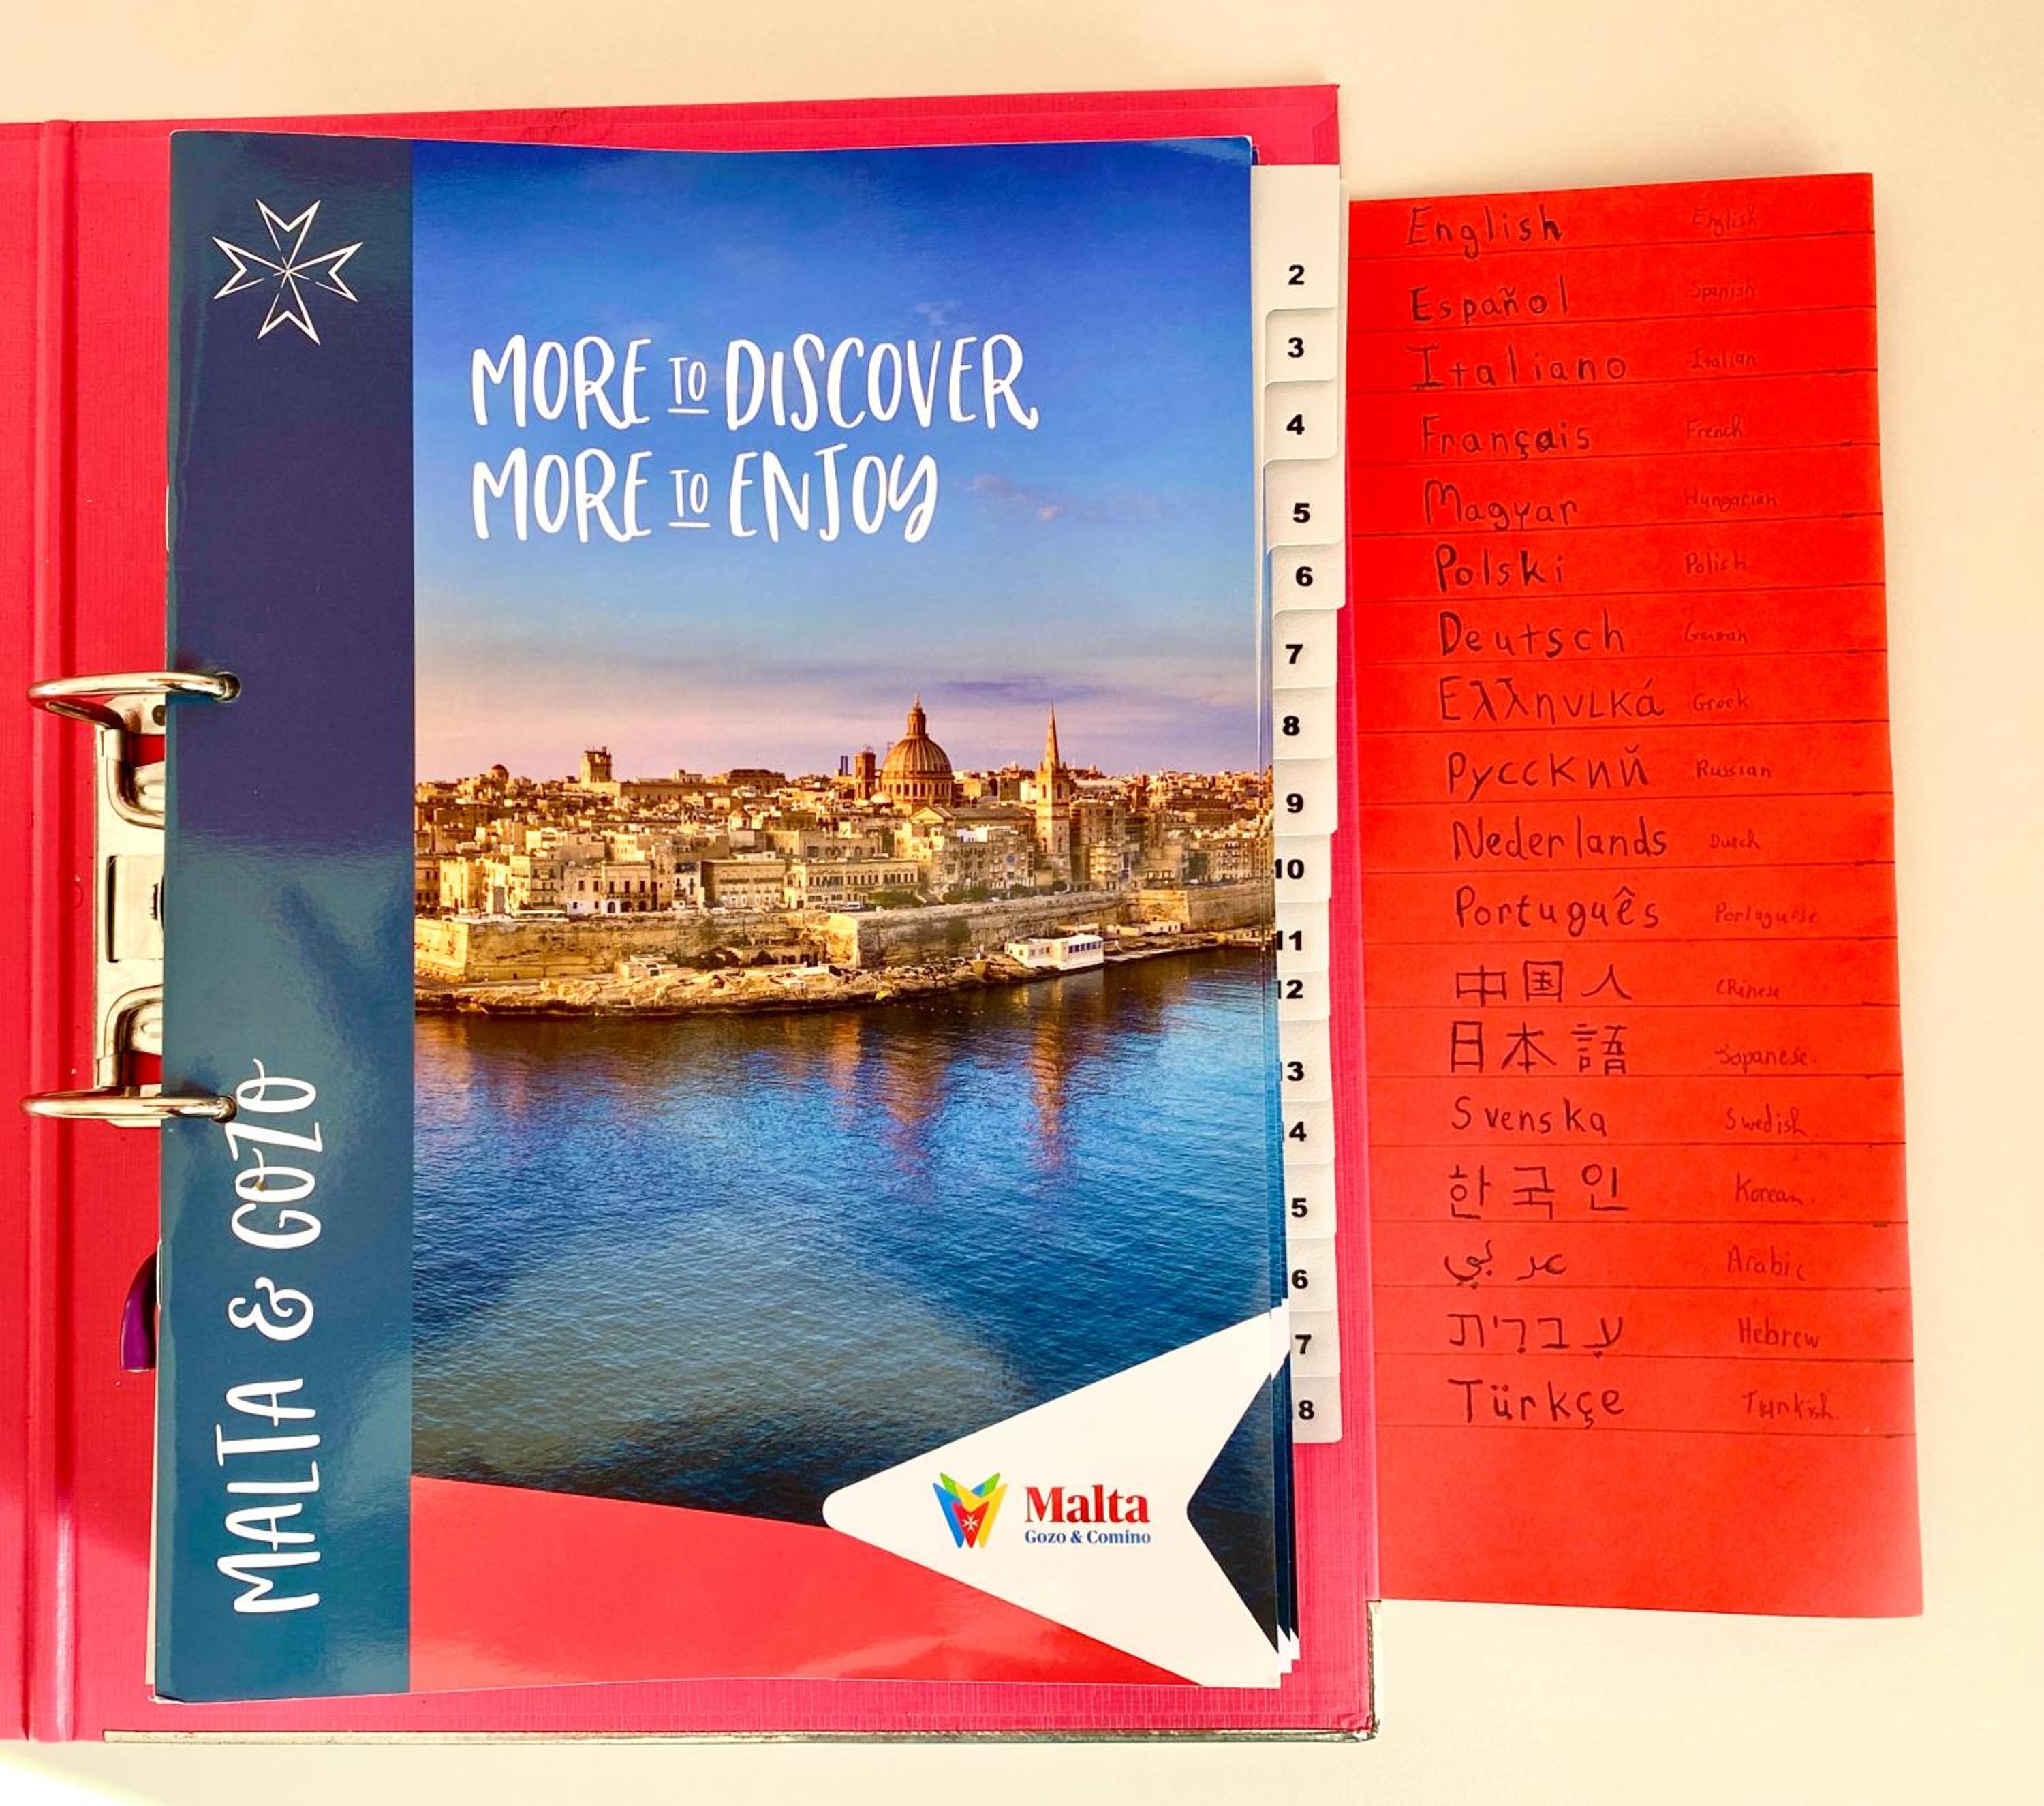 MORE TO DISCOVER,
MORE TO ENJOY
MALTA & GOZO
Malta
Gozo & Comino
2
3
4
5
6
7
8
9
10
11
12
13
4
5
6
7
8
English English
Español Spanish
Italiano Italian
Français French
Magyar Hungarian
Polski Polish
Deutsch German
Ελληνικά Greek
Русский Russian
Nederlands Dutch
Português Portuguese
中国人 Chinese
日本語 Japanese.
Svenska Swedish.
한국인 Korean.
عربي Arabic
עִבְרִית Hebrew
Türkçe Turkish.